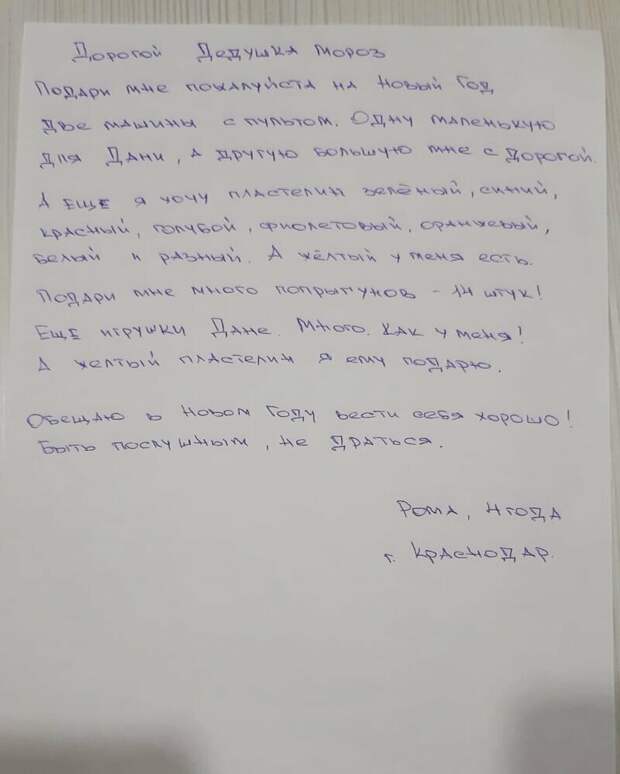 Дорогой Дедушка Мороз
Подари мне пожалуйста на Новый Год
две машины с пультом. Одну маленькую
для Дани, а другую большую мне с дорогой.
А еще я хочу пластелин зелёный, синий,
красный, голубой, фиолетовый, оранжевый,
белый и разный. А жёлтый у меня есть.
Подари мне много попрыгунов - 14 штук!
Еще игрушки Дане. Много. Как у меня!
А желтый пластелин я ему подарю.
Обещаю в Новом Году вести себя хорошо!
Быть послушным, не драться.
Рома, 4 года
г. Краснодар.